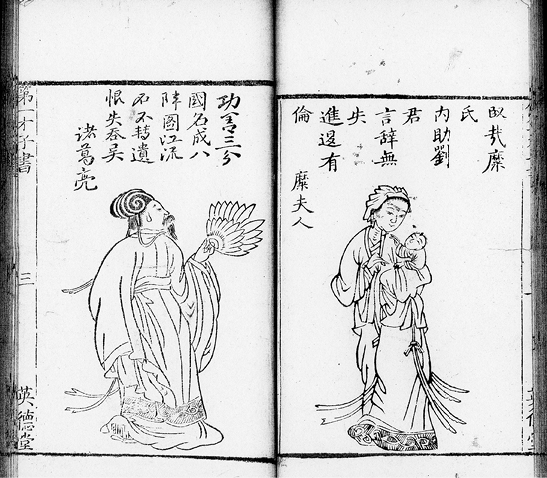 臤哉糜
氏
内助劉
君
言辞無
失
進退有
倫
糜夫人
功盖三分
國名成八
陣圖江流
石不轉遺
恨失吞吳
诸葛亮
第一才子書
三
英德堂